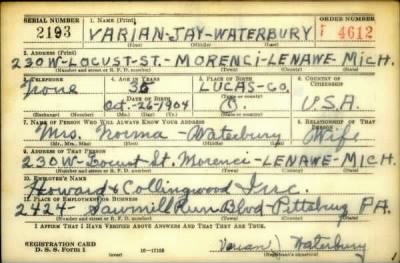 SERIAL NUMBER 1. NAME (Print) ORDER NUMBER
2193 VARIAN-JAY-WATERBURY 4612
(First) (Middle) (Last)
2. ADDRESS (Print)
230 W-LOCUST-ST.-MORENCI-LENAWE-MICH.
(Number and street or R. F. D. number) (Town) (County) (State)
3. TELEPHONE 4. AGE IN YEARS 5. PLACE OF BIRTH 6. COUNTRY OF CITIZENSHIP
None 35 LUCAS-Co.
DATE OF BIRTH
Oct-26-1904 O. U.S.A.
(Exchange) (Number) (Mo.) (Day) (Yr.) (State or country)
7. NAME OF PERSON WHO WILL ALWAYS KNOW YOUR ADDRESS 8. RELATIONSHIP OF THAT PERSON
Mrs. Norma Waterbury Wife
(Mr., Mrs., Miss) (First) (Middle) (Last)
9. ADDRESS OF THAT PERSON
230 W-Locust St. Morenci-LENAWE-MICH.
(Number and street or R. F. D. number) (Town) (County) (State)
10. EMPLOYER'S NAME
Howard & Collingwood Inc.
11. PLACE OF EMPLOYMENT OR BUSINESS
2424- Sawmill Run Blvd-Pittsburg PA.
(Number and street or R. F. D. number) (Town) (County) (State)
I AFFIRM THAT I HAVE VERIFIED ABOVE ANSWERS AND THAT THEY ARE TRUE.
REGISTRATION CARD
D. S. S. Form 1 16-17105 Varian J Waterbury
(Registrant's signature)